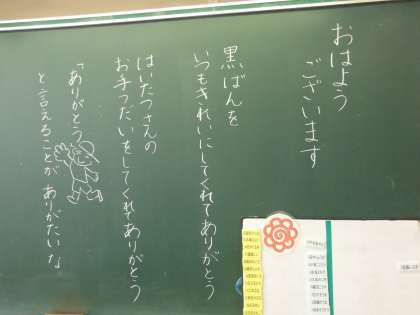 おはよう
ございます
黒ばんを
いつもきれいにしてくれてありがとう
はいたつさんの
お手つだいをしてくれてありがとう
「ありがとう」
と言えることが ありがたいな